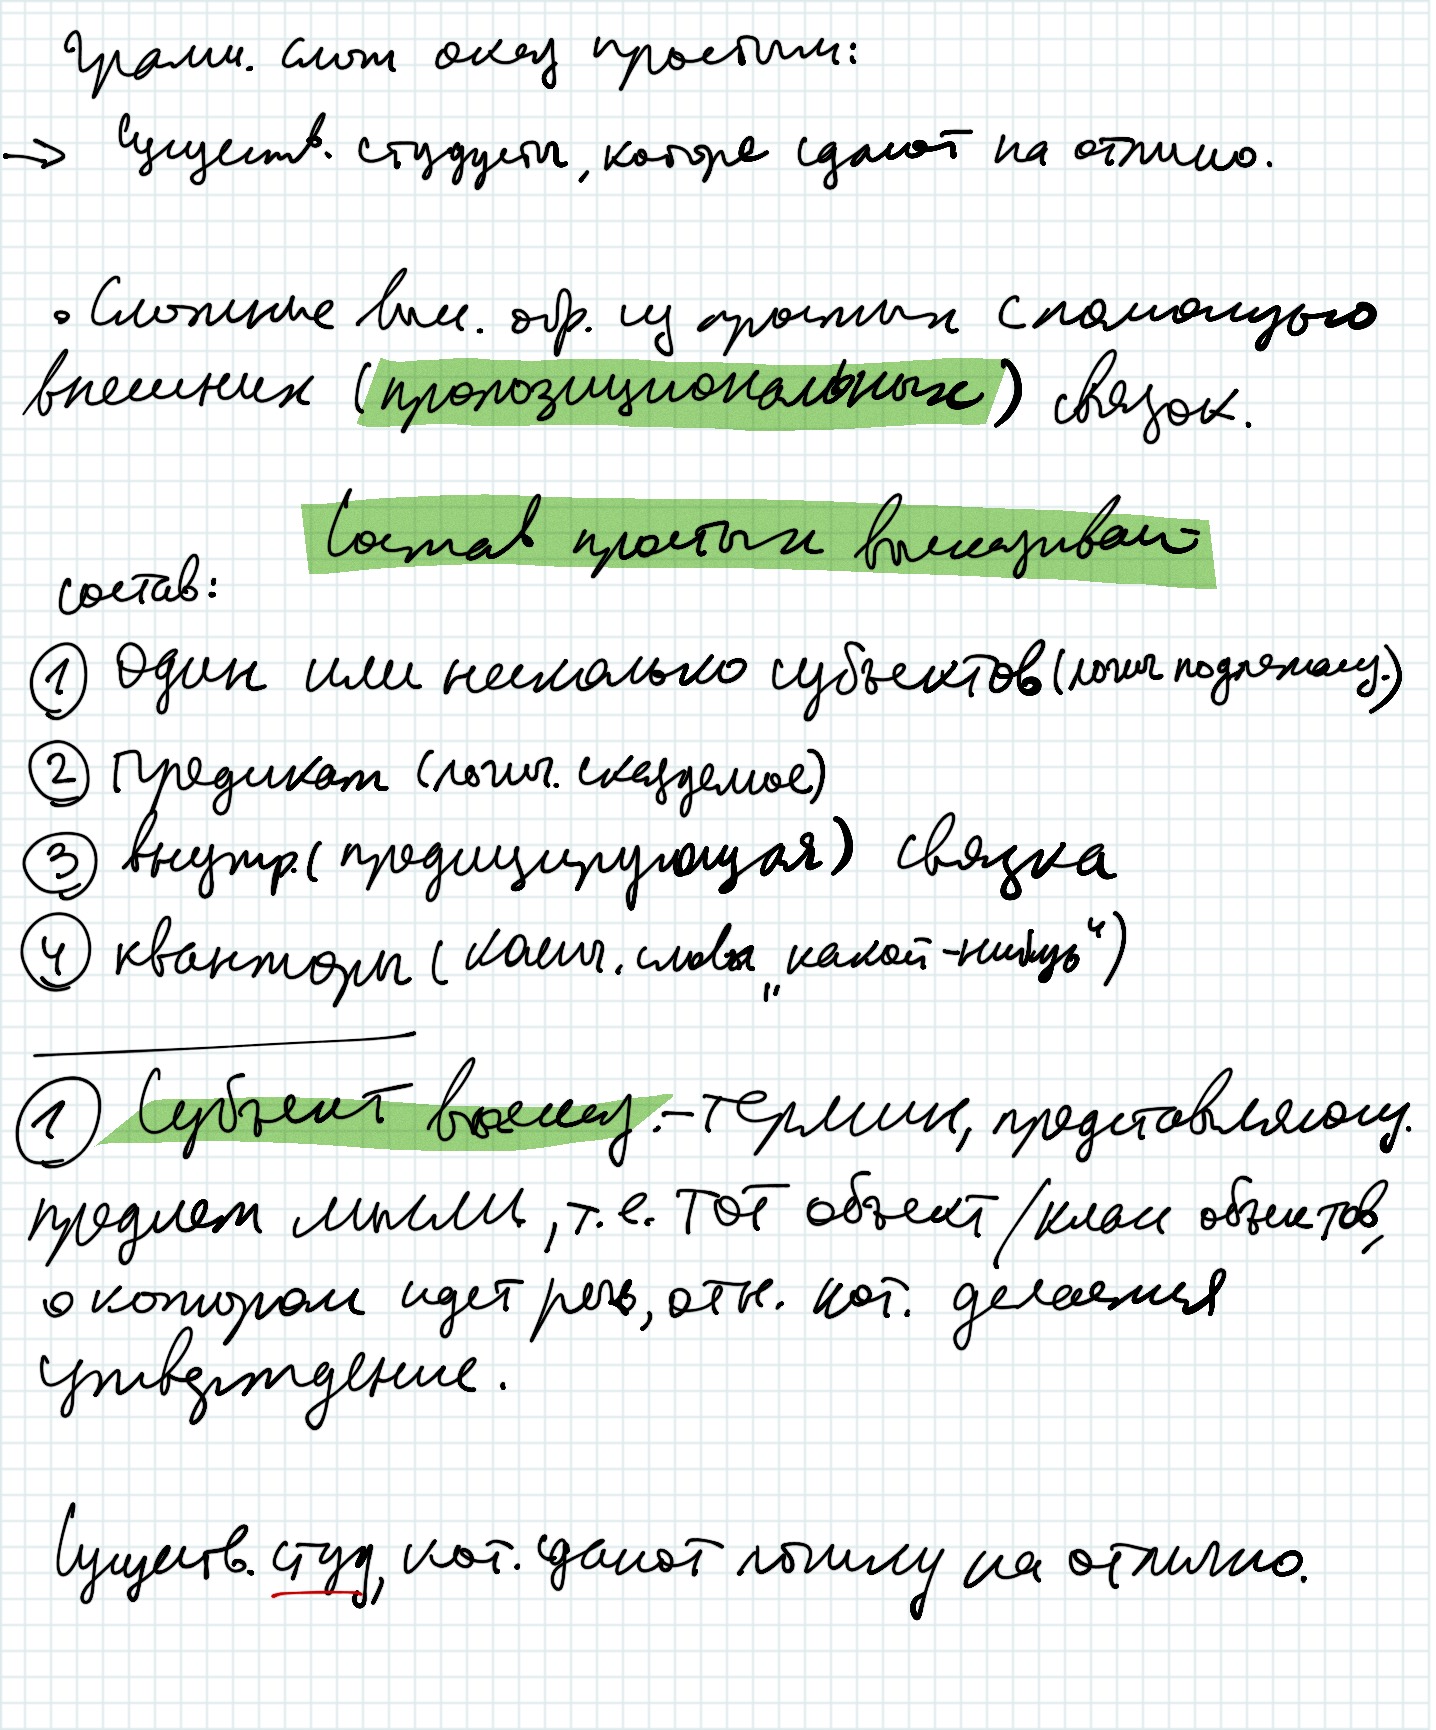 Грамм. слож оказ простым:
→ Существ. студенты, которые сдают на отлично.
• Сложные выс. обр. из простых с помощью
внешних (пропозициональных) связок.
Состав простых высказыван-
состав:
① Один или несколько субъектов (логич подлежащ.)
② Предикат (логич. сказуемое)
③ внутр. (предицирующая) связка
④ кванторы (колич. слова „какой-нибудь“)
① Субъект высказ. – термин, представляющ.
предмет мысли, т.е. тот объект/класс объектов,
о котором идет речь, отн. кот. делается
утверждение.
Существ. студ, кот. сдают логику на отлично.